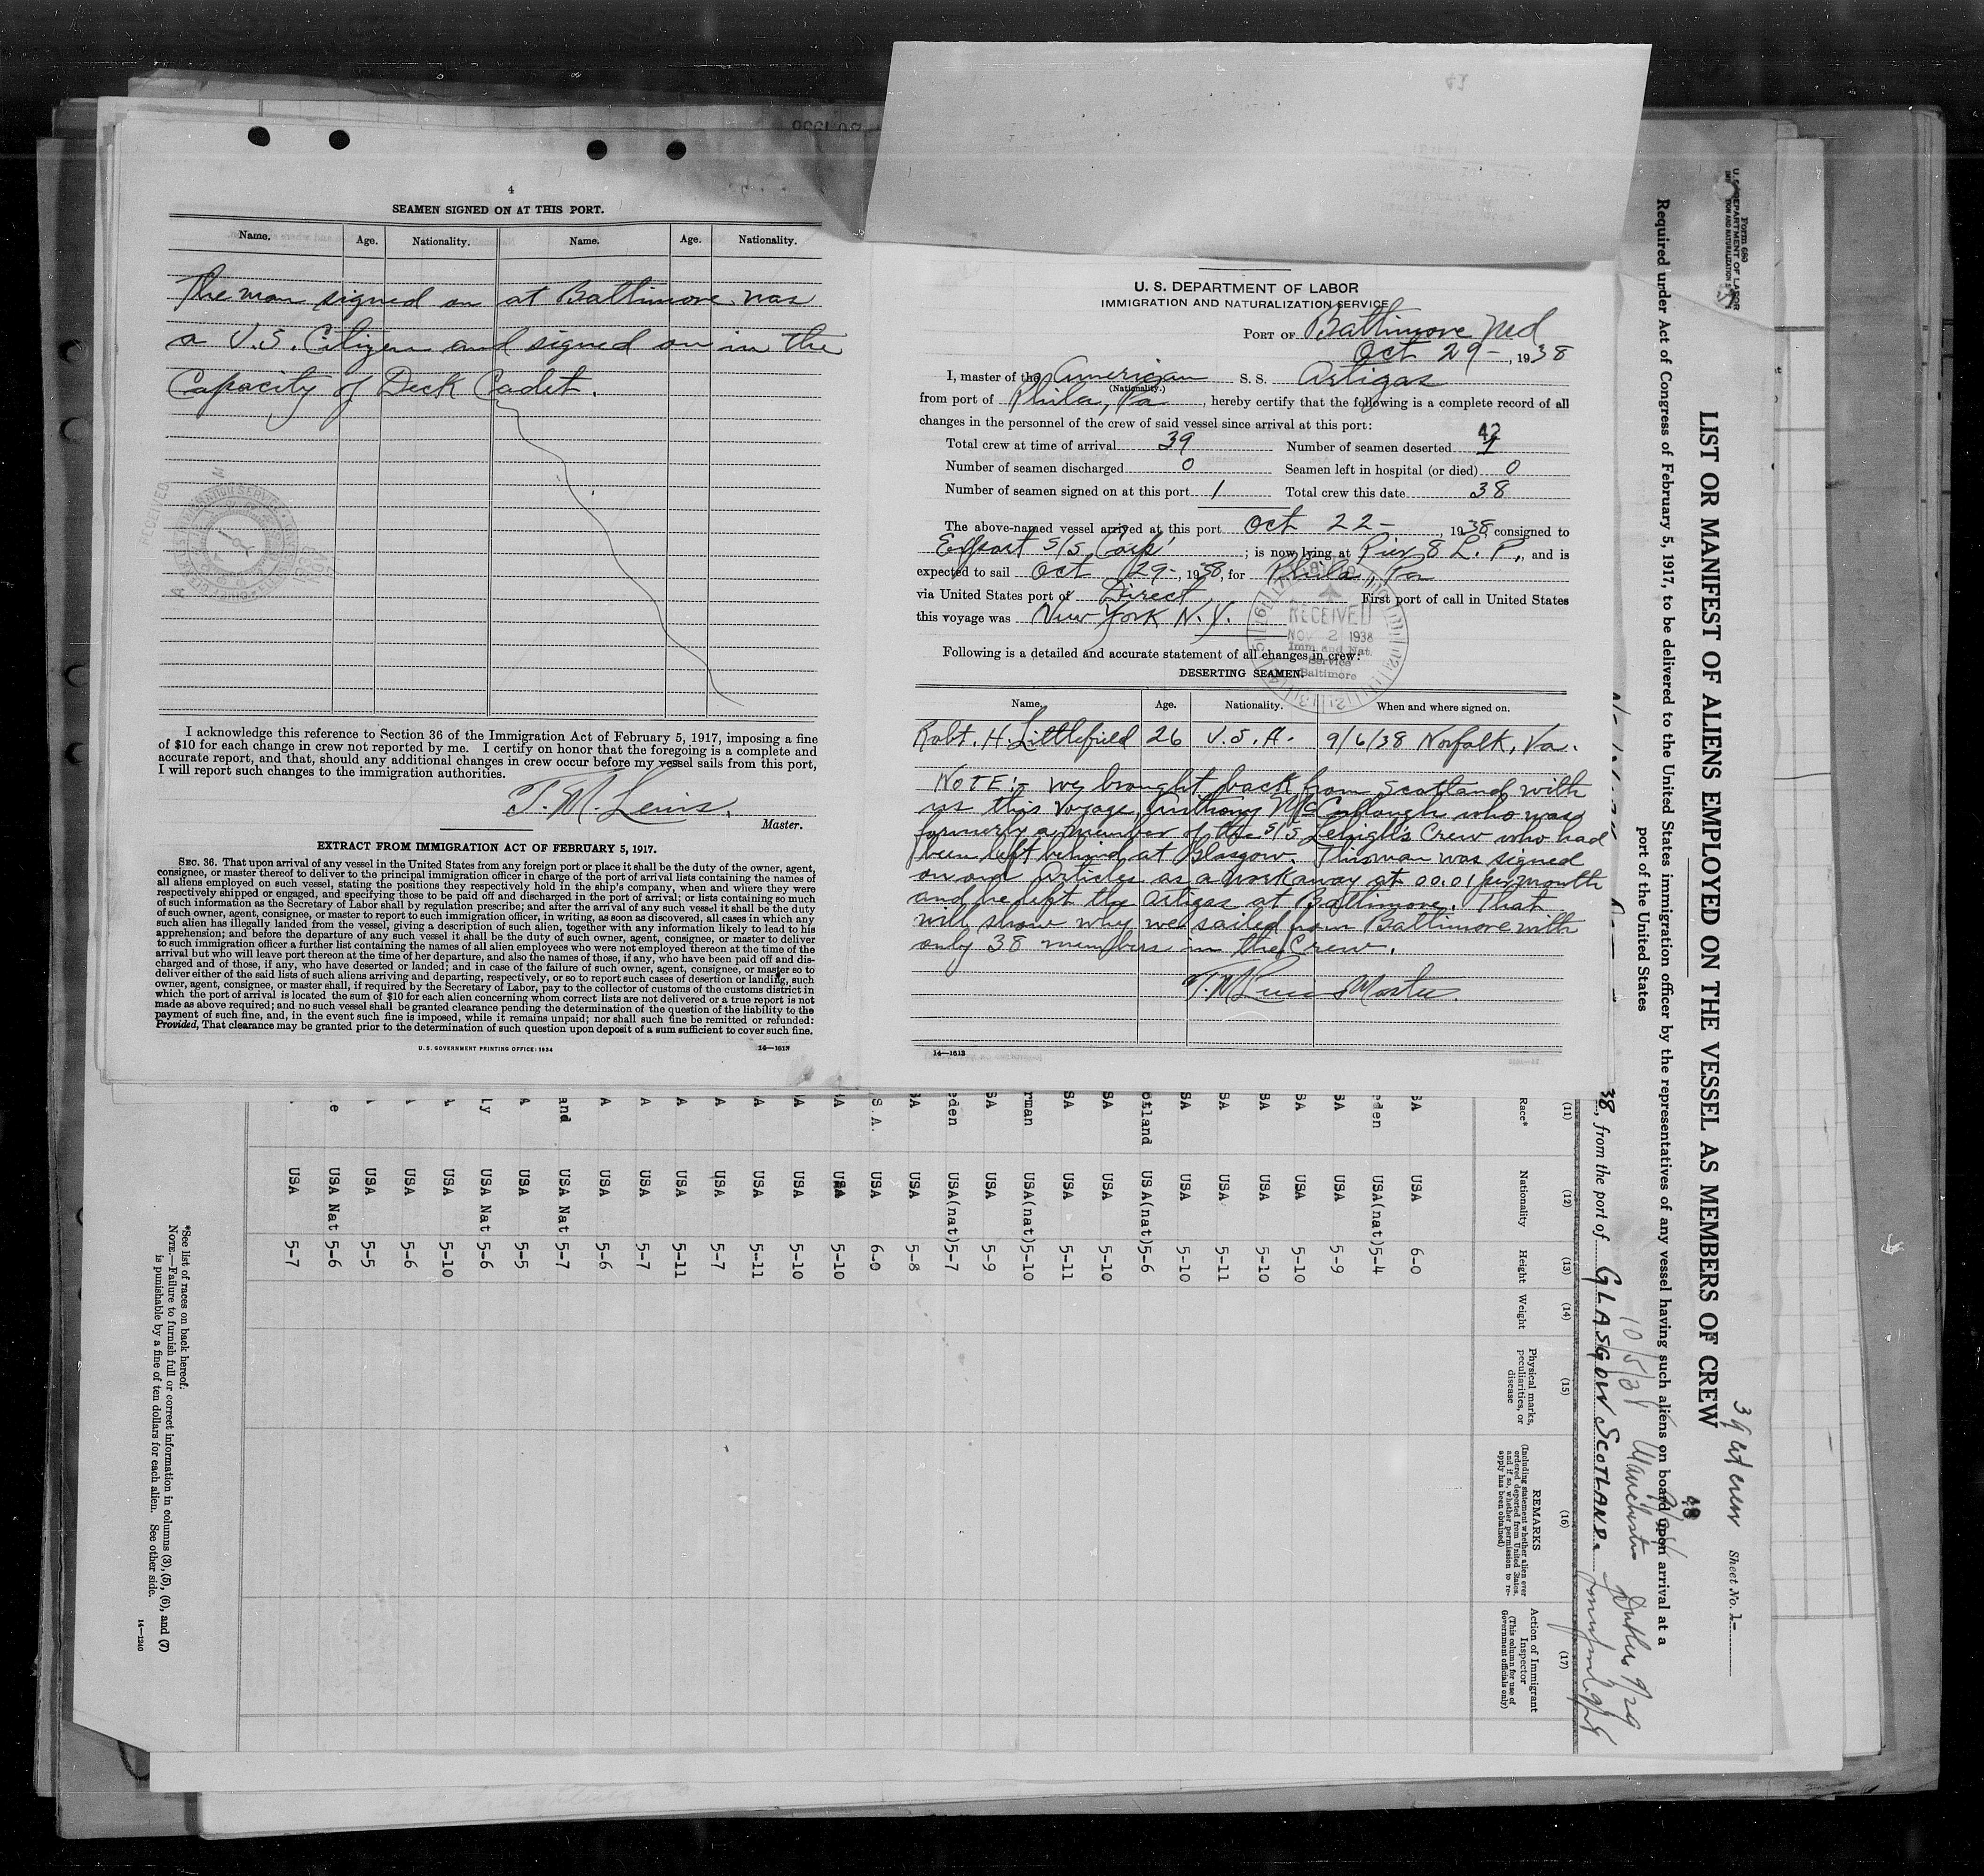 4
SEAMEN SIGNED ON AT THIS PORT.
Name. Age. Nationality. Name. Age. Nationality.
The man signed on at Baltimore was
a U.S. Citizen and signed on in the
Capacity of Deck Cadet.
RECEIVED
I acknowledge this reference to Section 36 of the Immigration Act of February 5, 1917, imposing a fine
of $10 for each change in crew not reported by me. I certify on honor that the foregoing is a complete and
accurate report, and that, should any additional changes in crew occur before my vessel sails from this port,
I will report such changes to the immigration authorities.
T. M. Lewis.
Master.
EXTRACT FROM IMMIGRATION ACT OF FEBRUARY 5, 1917.
SEC. 36. That upon arrival of any vessel in the United States from any foreign port or place it shall be the duty of the owner, agent,
consignee, or master thereof to deliver to the principal immigration officer in charge of the port of arrival lists containing the names of
all aliens employed on such vessel, stating the positions they respectively hold in the ship's company, when and where they were
respectively shipped or engaged, and specifying those to be paid off and discharged in the port of arrival; or lists containing so much
of such information as the Secretary of Labor shall by regulation prescribe; and after the arrival of any such vessel it shall be the duty
of such owner, agent, consignee, or master to report to such immigration officer, in writing, as soon as discovered, all cases in which any
such alien has illegally landed from the vessel, giving a description of such alien, together with any information likely to lead to his
apprehension; and before the departure of any such vessel it shall be the duty of such owner, agent, consignee, or master to deliver
to such immigration officer a further list containing the names of all alien employees who were not employed thereon at the time of the
arrival but who will leave port thereon at the time of her departure, and also the names of those, if any, who have been paid off and dis-
charged and of those, if any, who have deserted or landed; and in case of the failure of such owner, agent, consignee, or master so to
deliver either of the said lists of such aliens arriving and departing, respectively, or so to report such cases of desertion or landing, such
owner, agent, consignee, or master, shall, if required by the Secretary of Labor, pay to the collector of customs of the customs district in
which the port of arrival is located the sum of $10 for each alien concerning whom correct lists are not delivered or a true report is not
made as above required; and no such vessel shall be granted clearance pending the determination of the question of the liability to the
payment of such fine, and, in the event such fine is imposed, while it remains unpaid; nor shall such fine be remitted or refunded:
Provided, That clearance may be granted prior to the determination of such question upon deposit of a sum sufficient to cover such fine.
U. S. GOVERNMENT PRINTING OFFICE: 1934
14—1613
U. S. DEPARTMENT OF LABOR
IMMIGRATION AND NATURALIZATION SERVICE
PORT OF Baltimore Md
Oct 29-, 1938
I, master of the American S. S. Artigas
(Nationality.)
from port of Phila, Pa, hereby certify that the following is a complete record of all
changes in the personnel of the crew of said vessel since arrival at this port:
42
Total crew at time of arrival 39 Number of seamen deserted 1
Number of seamen discharged 0 Seamen left in hospital (or died) 0
Number of seamen signed on at this port 1 Total crew this date 38
The above-named vessel arrived at this port Oct 22-, 1938 consigned to
Export S/S Corp; is now lying at Pier 8 L. P., and is
expected to sail Oct 29-, 1938, for Phila, Pa
via United States port of Direct First port of call in United States
this voyage was New York N.Y.
RECEIVED
NOV 2 1938
Imm. and Nat.
Service
Baltimore
Following is a detailed and accurate statement of all changes in crew:
DESERTING SEAMEN.
Name. Age. Nationality. When and where signed on.
Robt. H. Littlefield 26 U.S.A. 9/6/38 Norfolk, Va.
NOTE:- We brought back from Scotland with
us this voyage Anthony McCullough who was
formerly a member of the S/S Lehigh's Crew who had
been left behind at Glasgow. This man was signed
on our Articles as a workaway at 00.01 per month
and he left the Artigas at Baltimore. That
will show why we sailed from Baltimore with
only 38 members in the Crew.
T. M. Lewis Master
14—1613
Form 680
U. S. DEPARTMENT OF LABOR
39 crew Sheet No. 1-
LIST OR MANIFEST OF ALIENS EMPLOYED ON THE VESSEL AS MEMBERS OF CREW
48
Required under Act of Congress of February 5, 1917, to be delivered to the United States immigration officer by the representatives of any vessel having such aliens on board upon arrival at a
port of the United States
10/5/38 Manchester 9/29
38, from the port of GLASGOW SCOTLAND.
(11) (12) (13) (14) (15) (16) (17)
Race* Nationality Height Weight Physical marks, peculiarities, or disease REMARKS (Including statement whether alien ever ordered deported from United States, and if so, whether permission to re-apply has been obtained) Action of Immigrant Inspector (This column for use of Government officials only)
SA USA 6-0
eden USA(nat) 5-4
SA USA 5-9
SA USA 5-10
SA USA 5-10
SA USA 5-11
SA USA 5-10
otland USA(nat) 5-6
SA USA 5-10
SA USA 5-11
rman USA(nat) 5-10
SA USA 5-9
eden USA(nat) 5-7
SA USA 5-8
S.A. USA 6-0
SA USA 5-10
A USA 5-10
A USA 5-11
A USA 5-7
A USA 5-11
A USA 5-7
A USA 5-6
and USA Nat 5-7
A USA 5-5
ly USA Nat 5-6
A USA 5-10
A USA 5-6
USA 5-5
e USA Nat 5-6
USA 5-7
*See list of races on back hereof.
NOTE.—Failure to furnish full or correct information in columns (3), (5), (6), and (7)
is punishable by a fine of ten dollars for each alien. See other side.
14—1240